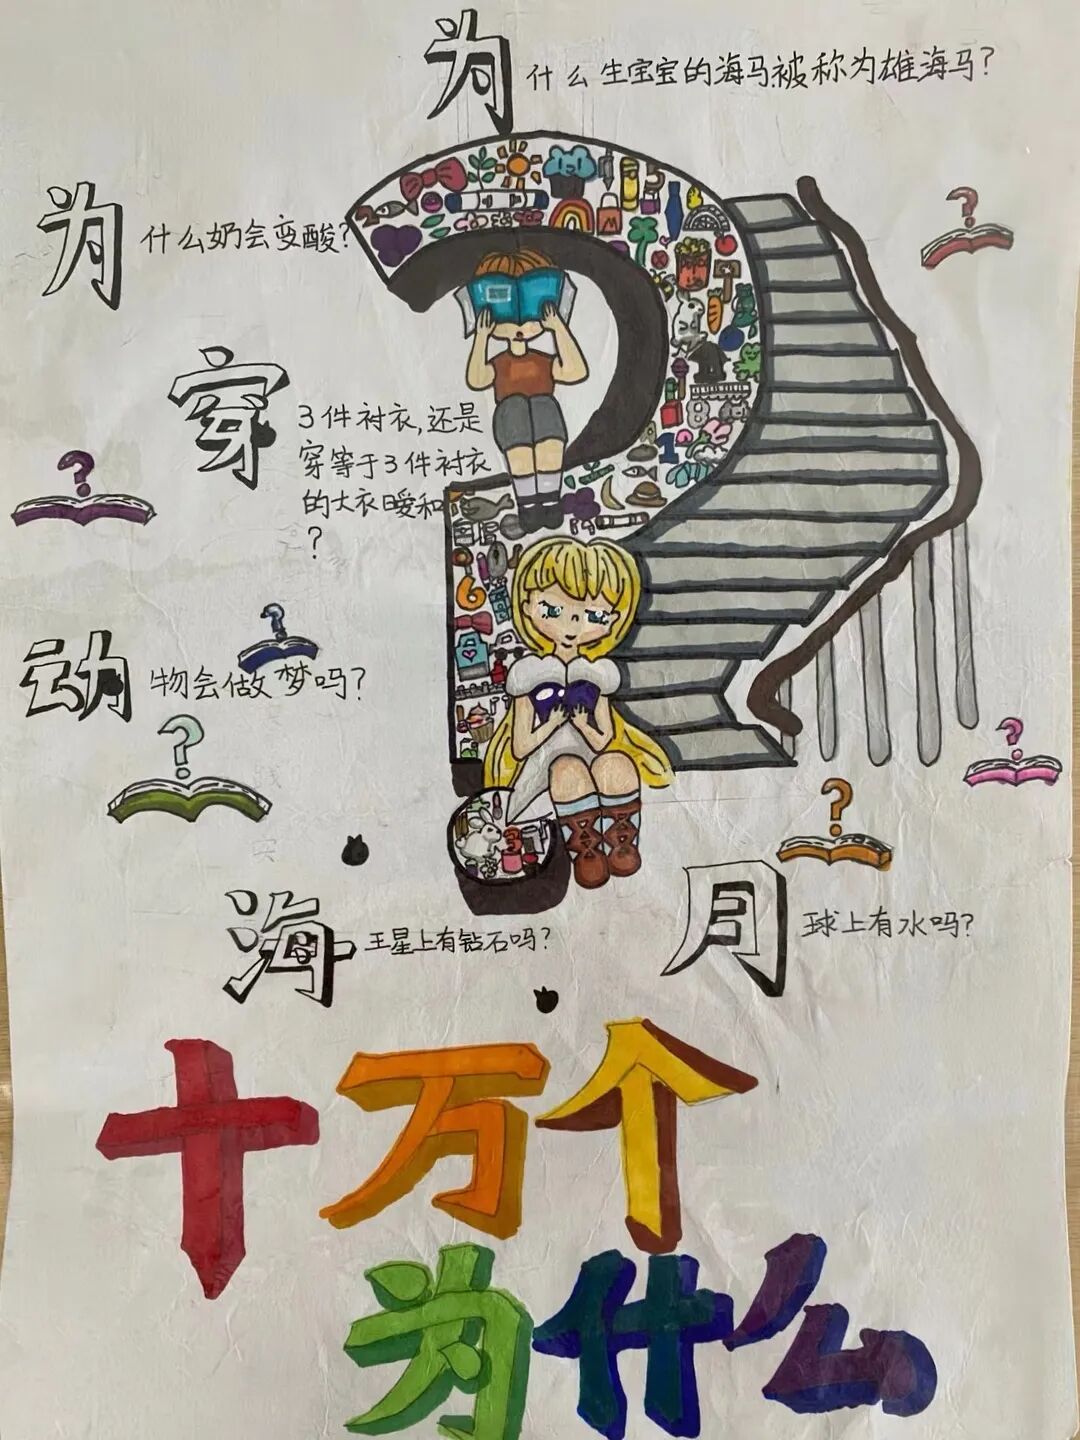 为什么生宝宝的海马被称为雄海马?
为什么奶会变酸?
穿3件衬衣,还是
穿等于3件衬衣
的大衣暖和
?
动物会做梦吗?
海王星上有钻石吗?
月球上有水吗?
十万个
为什么